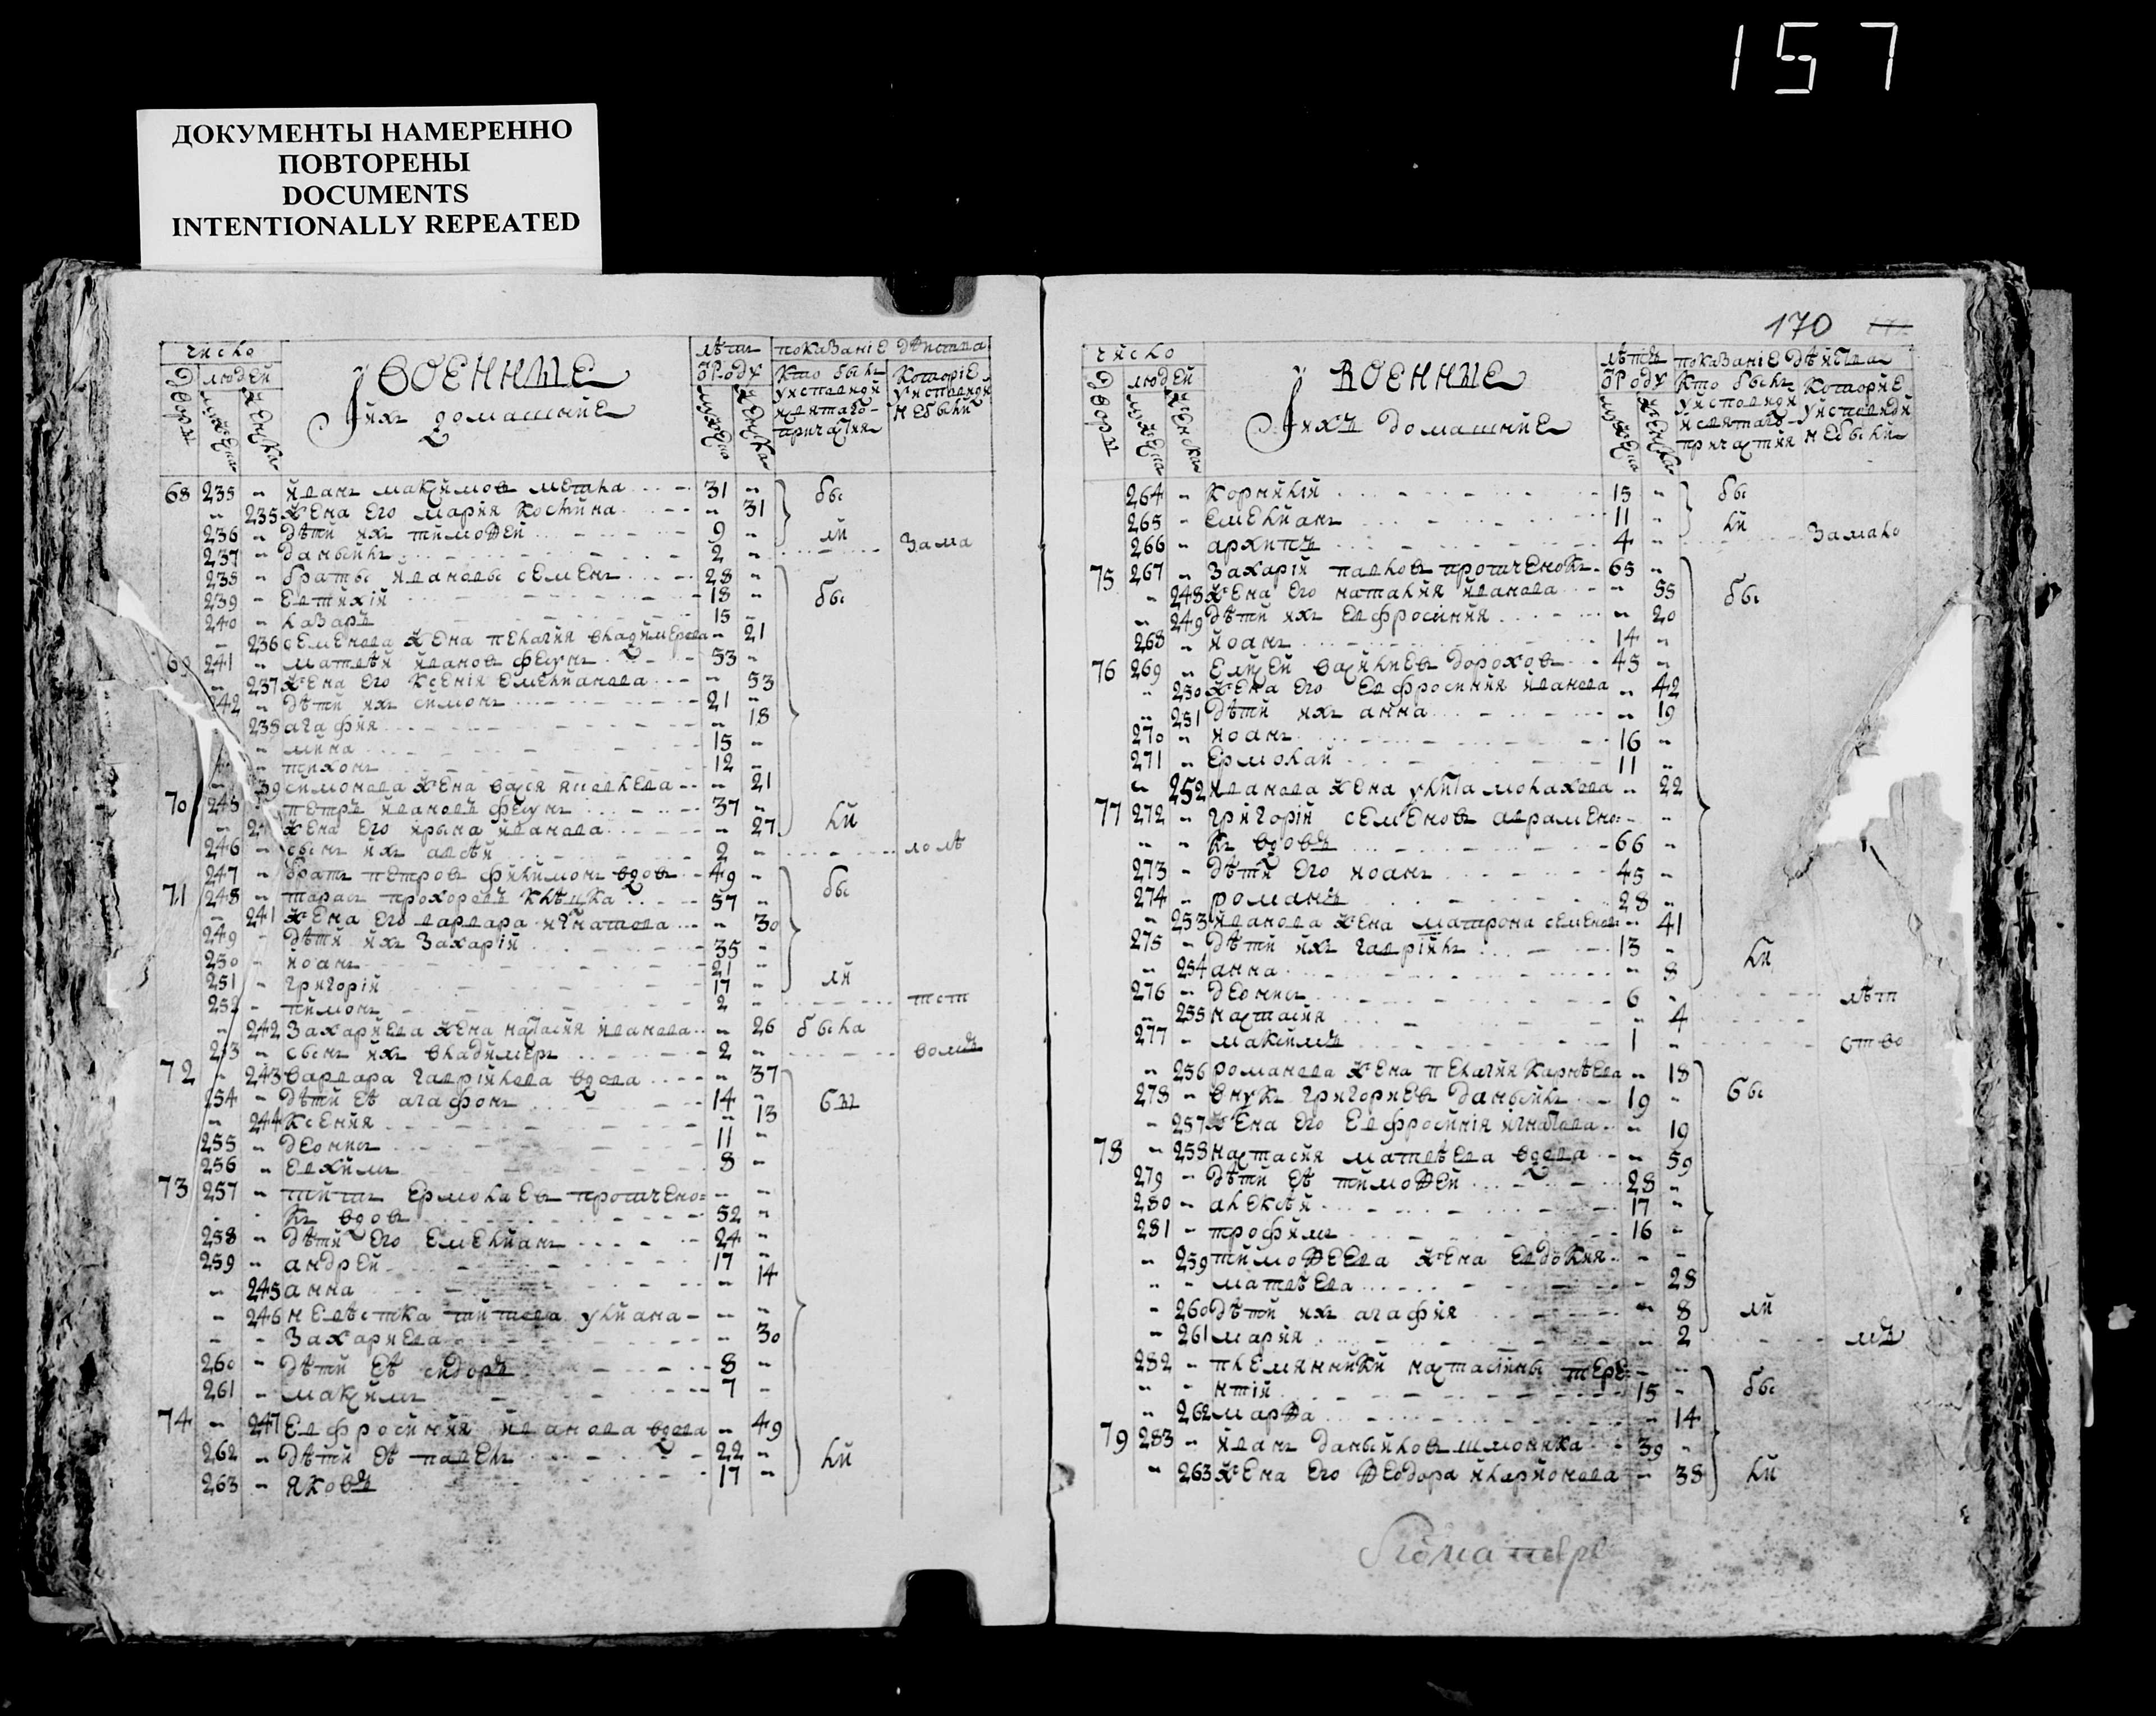 157
ДОКУМЕНТЫ НАМЕРЕННО
ПОВТОРЕНЫ
DOCUMENTS
INTENTIONALLY REPEATED
число
двори людей мужска женска
Военные
и ихъ домашние
лѣтъ ѿ роду мужска женска
показание дѣйства
кто былъ у исповеди и святаго причастия
которие у исповеди не были
68 235 " Иванъ Максимовъ 31 " бы
" 235 жена его Мария Костина " 31
236 " дѣти ихъ Тимоѳей 9 " ли
237 " Даныилъ 2 " зама
238 " браты Ивановы Семенъ 28 "
239 " Евтихій 18 " бы
240 " Лазаръ 15 "
" 236 Семенова жена Пелагия Владимерова " 21
69 241 " Матвѣй Ивановъ 53 "
" 237 жена его Ксения Емелиянова " 53
242 " дѣти ихъ Симонъ 21 "
238 Агафия " 18
" Мина 15 "
" Тихонъ 12 "
39 Симонова жена Яковлева " 21
70 245 " Петръ Ивановъ 37 "
жена его Ирына Иванова " 27 ли
246 " сынъ ихъ Авсѣй 2 " лолѣ
247 " братъ Петровъ Филимонъ вдовъ 49 "
71 248 " Тарасъ Прохоровъ 57 " бы
" 241 жена его Варвара Игнатова " 30
249 " дѣти ихъ Захарій 35 "
250 " Иоанъ 21 "
251 " Григорій 17 " ли
252 " Тимонъ 2 "
" 242 Захариева жена Настасия Иванова " 26 была
253 " сынъ ихъ Владимеръ 2 "
72 " 243 Варвара Гаврийлова вдова " 37
254 " дѣти еѣ Агафонъ 14 " бы
" 244 Ксения " 13
255 " Деонис 11 "
256 " Евхимъ 8 "
73 257 " Титъ Ермолаевъ Протчено= " "
" " къ вдовъ 52 "
258 " дѣти его Емелиянъ 24 "
259 " Андрей 17 "
" 245 Анна " 14
" 246 невѣстка Титова Улияна " "
" " Захариева " 30
260 " дѣти еѣ Сидоръ 8 "
261 " Максимъ 7 "
74 " 247 Евфросиния Иванова вдова " 49
262 " дѣти еѣ Павелъ 22 " ли
263 " Яковъ 17 "
170
число
двори людей мужска женска
Военные
и ихъ домашние
лѣтъ ѿ роду мужска женска
показание дѣйства
кто былъ у исповеди и святаго причастия
которие у исповеди не были
264 " Корнилій 15 " бы
265 " Емелианъ 11 " ли
266 " Архипъ 4 " замало
75 267 " Захарій Павловъ Протченокъ 65 "
" 248 жена его Наталия Иванова " 55 бы
" 249 дѣти ихъ Евфросиния " 20
268 " Иоанъ 14 "
76 269 " Елисей Василиевъ Дороховъ 45 "
" 250 жена его Евфросиния Иванова " 42
" 251 дѣти ихъ Анна " 19
270 " Иоанъ 16 "
271 " Ермолай 11 "
" 252 Иванова жена Улита " 22
77 272 " Григорій Семеновъ Аврамено= " "
" " къ вдовъ 66 "
273 " дѣти его Иоанъ 45 "
274 " Романъ 28 "
" 253 Иванова жена Матрона Семенова " 41
275 " дѣти ихъ Гаврийлъ 13 " ли
" 254 Анна " 8
276 " Деонис 6 " лѣт
" 255 Настасия " 4
277 " Максимъ 1 "
" 256 Романова жена Пелагия Карнѣева " 18
278 " внукъ Григориевъ Даныилъ 19 " бы
" 257 жена его Евфросиния Игнатова " 19
78 " 258 Настасия Матвѣева вдова " 59
279 " дѣти еѣ Тимоѳей 28 "
280 " Алексѣй 17 "
281 " Трофимъ 16 "
" 259 Тимоѳеева жена Евдокия " "
" " Матвѣева " 28
" 260 дѣти ихъ Агафия " 8 ли
" 261 Мария " 2 мъ
282 " племянники Настасіины Тере= " "
" " нтій 15 " бы
" 262 Марѳа " 14
79 283 " Иванъ Данылловъ 39 "
" 263 жена его Ѳеодора Иларионова " 38 ли